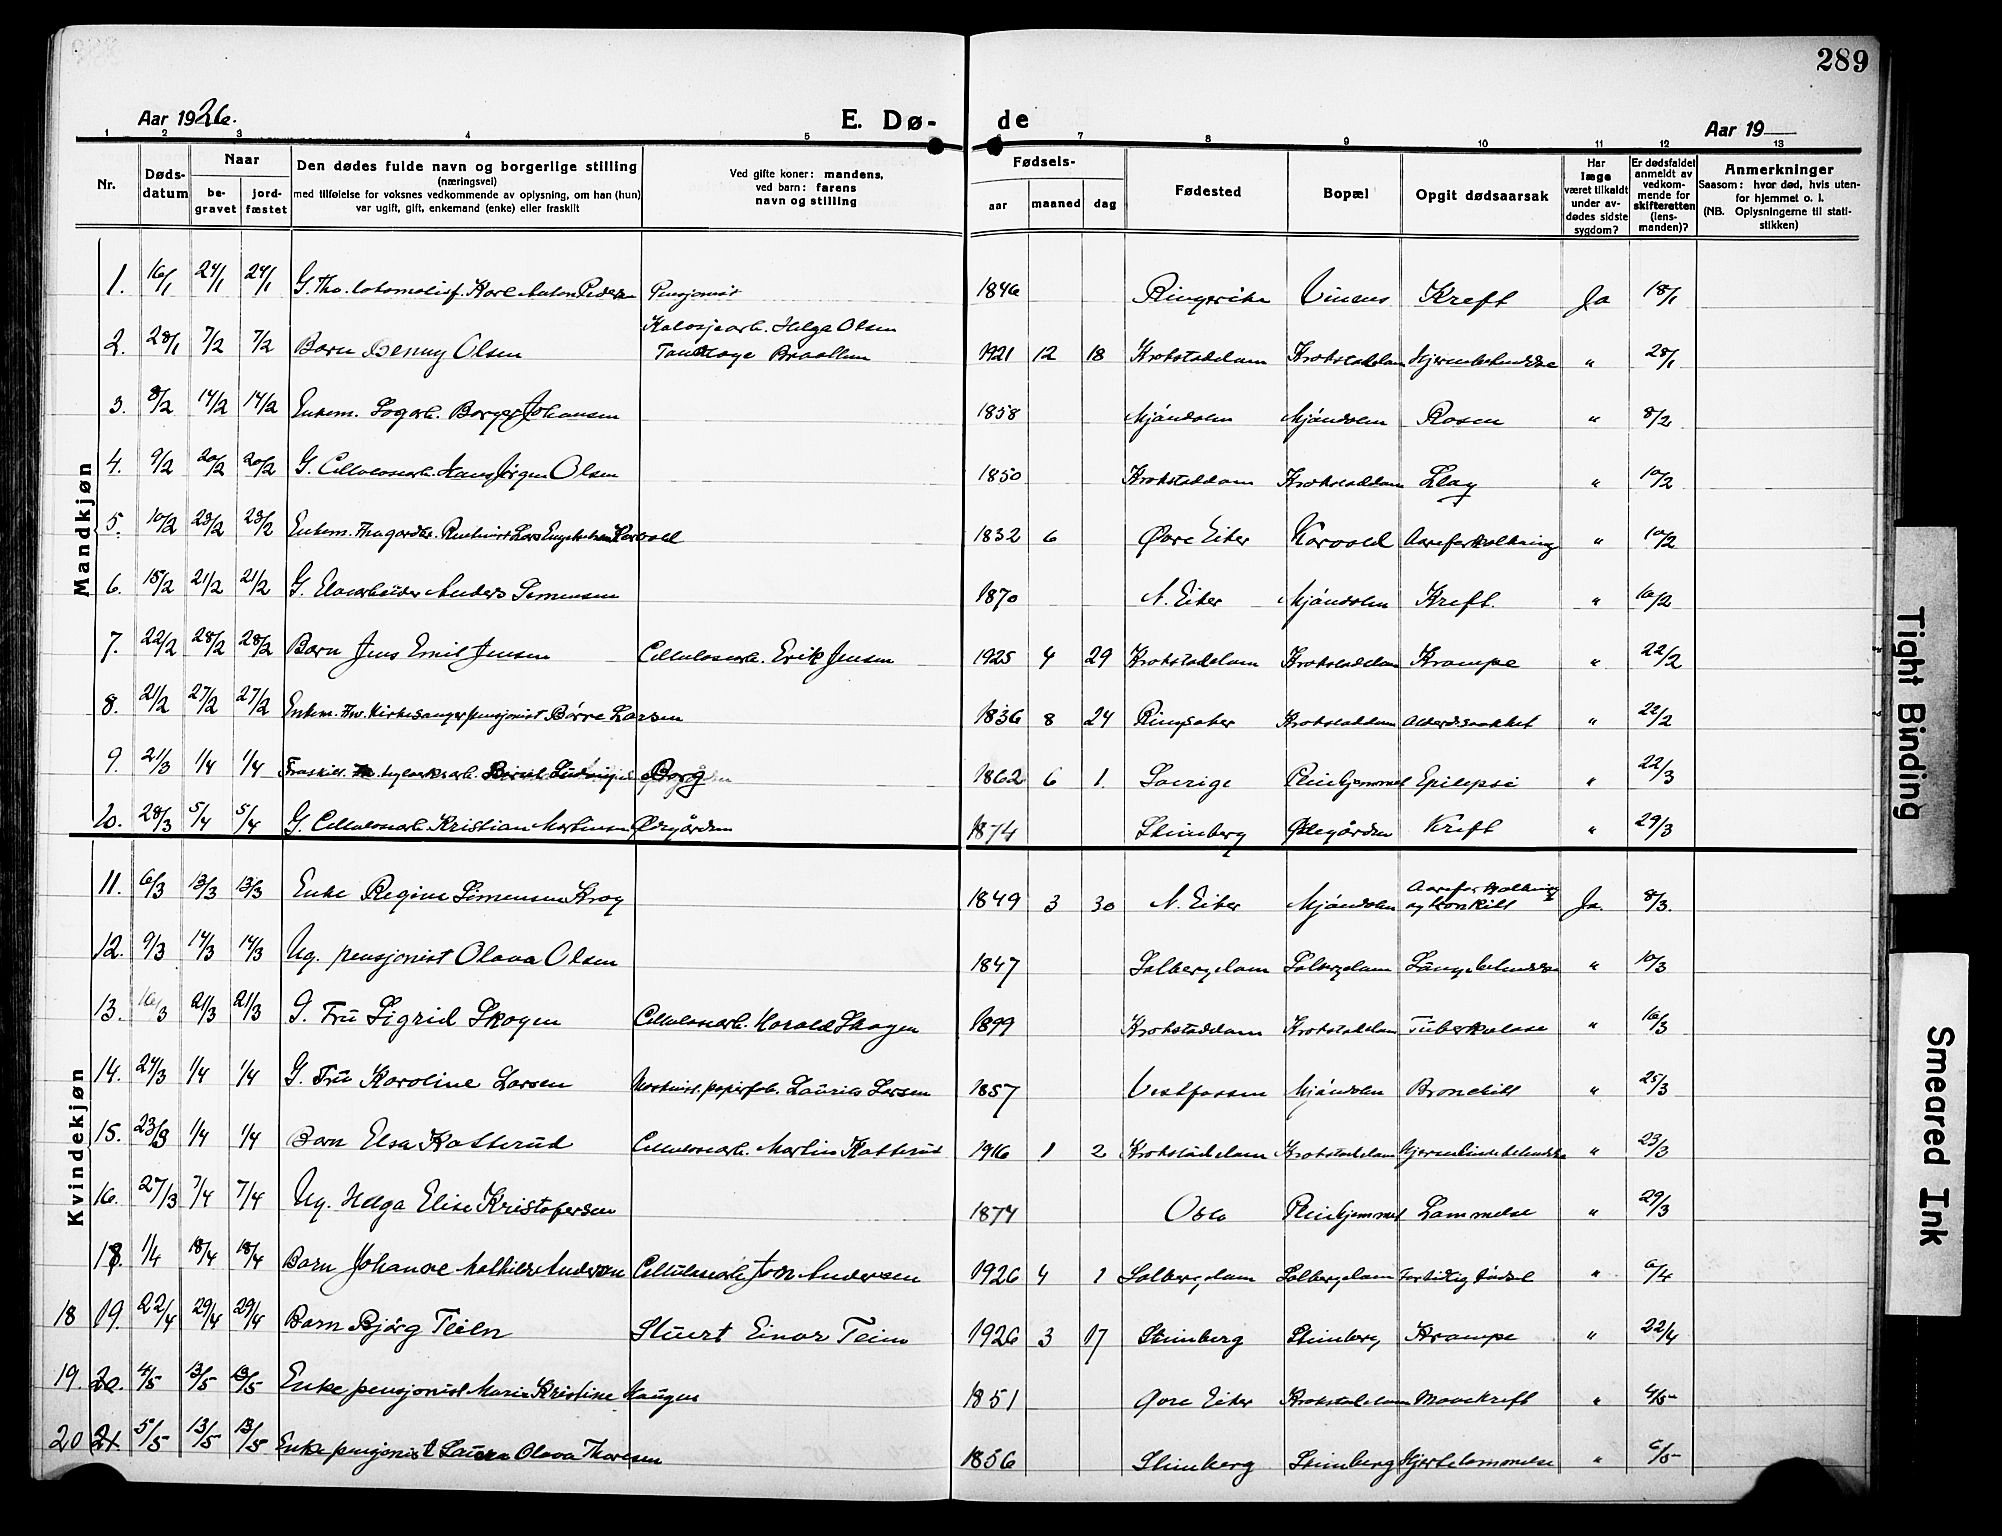 289
Aar 1926.
E. Dø-
de
Aar 19
1 2 3 4 5 6 7 8 9 10 11 12 13
Nr.
Døds-
datum
Naar
be-
gravet
jord-
fæstet
Den dødes fulde navn og borgerlige stilling
(næringsvei)
med tilføielse for voksnes vedkommende av oplysning, om han (hun)
var ugift, gift, enkemand (enke) eller fraskilt
Ved gifte koner: mandens,
ved barn: farens
navn og stilling
Fødsels-
aar maaned dag
Fødested
Bopæl
Opgit dødsaarsak
Har
læge
været tilkaldt
under av-
dødes sidste
sygdom?
Er dødsfaldet
anmeldt av
vedkom-
mende for
skifteretten
(lens-
manden)?
Anmerkninger
Saasom: hvor død, hvis uten-
for hjemmet o. l.
(NB. Oplysningerne til stati-
stikken)
Mandkjøn
1. 16/1 24/1 24/1 G. Karl Anton Pedersen Pensjonist 1846 Ringerike Vinens Kreft Ja 18/1
2. 28/1 7/2 7/2 Barn Benny Olsen Helga Olsen Braathen 1921 12 18 Krokstadelven Krokstadelven Hjernebetendelse " 28/1
3. 8/2 14/2 14/2 Enkem. Sagarb. Borger Johansen 1858 Mjøndalen Mjøndalen Rosen " 8/2
4. 9/2 20/2 20/2 G. Cellulosearb. Hans Jørgen Olsen 1850 Krokstadelven Krokstadelven Slag " 10/2
5. 10/2 23/2 23/2 Enkem. Lars Engebretsen Horvold 1832 6 Øvre Eiker Horvold Aareforkalkning " 10/2
6. 15/2 21/2 21/2 G. Anders Simensen 1870 N. Eiker Mjøndalen Kreft. " 16/2
7. 22/2 28/2 28/2 Barn Jens Emil Jensen Cellulosearb. Erik Jensen 1925 4 29 Krokstadelven Krokstadelven Krampe " 22/2
8. 21/2 27/2 27/2 Enkem. Fhv. Kirkesanger pensjonist Børre Larsen 1836 8 24 Ringsaker Krokstadelven Alderdomssvakhet " 22/2
9. 21/3 1/4 1/4 Fraskilt Borg 1862 6 1. Sverige Pleiehjemmet Epilepsi " 22/3
10. 28/3 5/4 5/4 G. Cellulosearb. Kristian Martinsen Ødegården 1874 Stenberg Ødegården Kreft " 29/3
Kvindekjøn
11. 6/3 13/3 13/3 Enke Regine Simensen Krog 1849 3 30 N. Eiker Mjøndalen Aareforkalkning og bronkitt Ja. 8/3.
12. 9/3 14/3 14/3 Ug. pensjonist Olava Olsen 1847 Solbergelven Solbergelven Lungebetendelse " 10/3
13. 16/3 21/3 21/3 G. Fru Sigrid Skogen Cellulosearb. Harald Skogen 1899 Krokstadelven Krokstadelven Tuberkulose " 16/3
14. 24/3 1/4 1/4 G. Fru Karoline Larsen Maskinist. papirfab. Laurits Larsen 1857 Vestfossen Mjøndalen Bronkitt " 25/3
15. 23/3 1/4 1/4 Barn Elsa Katterud Cellulosearb. Martin Katterud 1916 1 2 Krokstadelven Krokstadelven Hjernehindebetendelse " 23/3
16. 27/3 7/4 7/4 Ug. Helga Elise Kristofersen 1874 Oslo Pleiehjemmet Lammelse " 29/3
17. 1/4 18/4 18/4 Barn Johanne Mathilde Andersen Cellulosearb. Jon Andersen 1926 4 1 Solbergelven Solbergelven For tidlig fødsel " 6/4
18 19. 22/4 29/4 29/4 Barn Bjørg Teien Stuert Einar Teien 1926 3 17 Stenberg Stenberg Krampe " 22/4
19. 20. 4/5 13/5 13/5 Enke pensjonist Marie Kristine Haugen 1851 Øvre Eiker Krokstadelven Mavekreft " 4/5
20 21 5/5 13/5 13/5 Enke pensjonist Laura Olava Thoresen 1856 Stenberg Stenberg Hjertelammelse " 6/5
Tight Binding
Smeared Ink